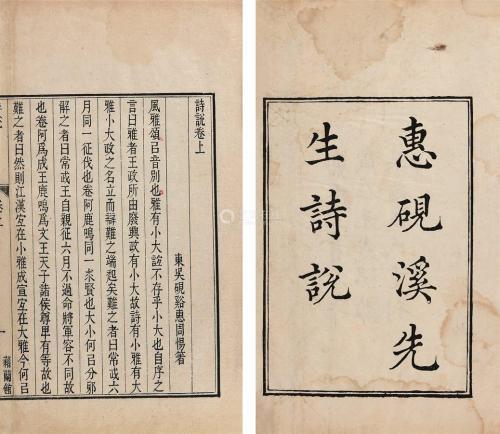 惠硯溪先
生詩說
詩說卷上
東吳硯谿惠周惕著
風雅頌㠯音別也雅有小大誼不存乎小大也自序之
言曰雅者王政所由廢興政有小大故詩有小雅有大
雅小大政之名立而辯難之端起矣難之者曰常或六
月同一征伐也卷阿鹿鳴同一求賢也大小何㠯分邪
解之者曰常或王自親征六月不過命將軍容不同故
也卷阿爲成王鹿鳴爲文王天子諸侯尊卑有等故也
難之者曰然則江漢宐在小雅成宣宐在大雅今何㠯
卷上
一